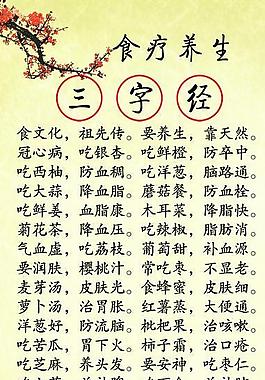 食疗养生
三字经
食文化，祖先传。要养生，靠天然。
冠心病，吃银杏。吃鲜橙，防卒中。
吃西柚，防血稠。吃洋葱，脑路通。
吃大蒜，降血脂。蘑菇餐，防血栓。
吃鲜姜，血脂康。木耳菜，降脂快。
菊花茶，降血压。吃辣椒，脂肪消。
气血虚，吃荔枝。葡萄甜，补血源。
要润肤，樱桃汁。常吃枣，不显老。
麦芽汤，皮肤光。食蜂蜜，皮肤细。
萝卜汤，治胃胀。红薯蒸，大便通。
洋葱好，防流脑。枇杷果，治咳嗽。
吃苦瓜，胃下火。柿子霜，治口疮。
吃芝麻，养头发。要安神，吃枣仁。